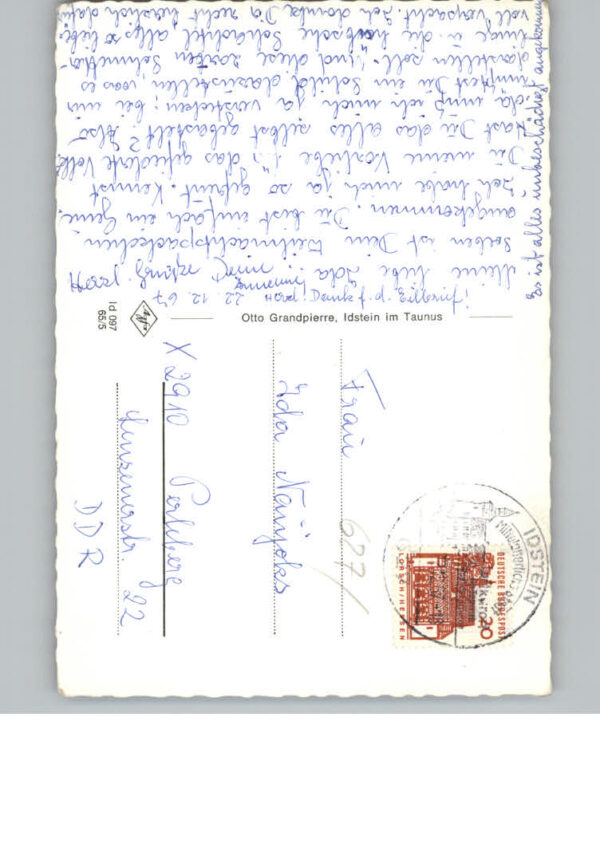 Idstein, d. 22.12.67
Meine liebe Ida!
Soeben ist Dein Weihnachtspäckchen
angekommen. Du bist einfach ein Genie.
Ich habe mich ja so gefreut. Kennst
Du meine Vorliebe für das gefiederte Volk?
Hast Du das alles selbst gebastelt? Also
da muß ich mich ja verstecken; bei mir
müßtest Du ein Schild dazustellen, was es
darstellen soll. Und diese zarten Schmetter-
linge u. die hübsche Schachtel, alles so liebe-
voll verpackt. Ich danke Dir recht herzlich dafür
Es ist alles unbeschädigt angekommen
Otto Grandpierre, Idstein im Taunus
Agfa
Id 097
65/5
Frau
Ida Naujoks
X 2910 Perleberg
22
DDR
627/
IDSTEIN
DEUTSCHE BUNDESPOST
20
LORSCH/HESSEN